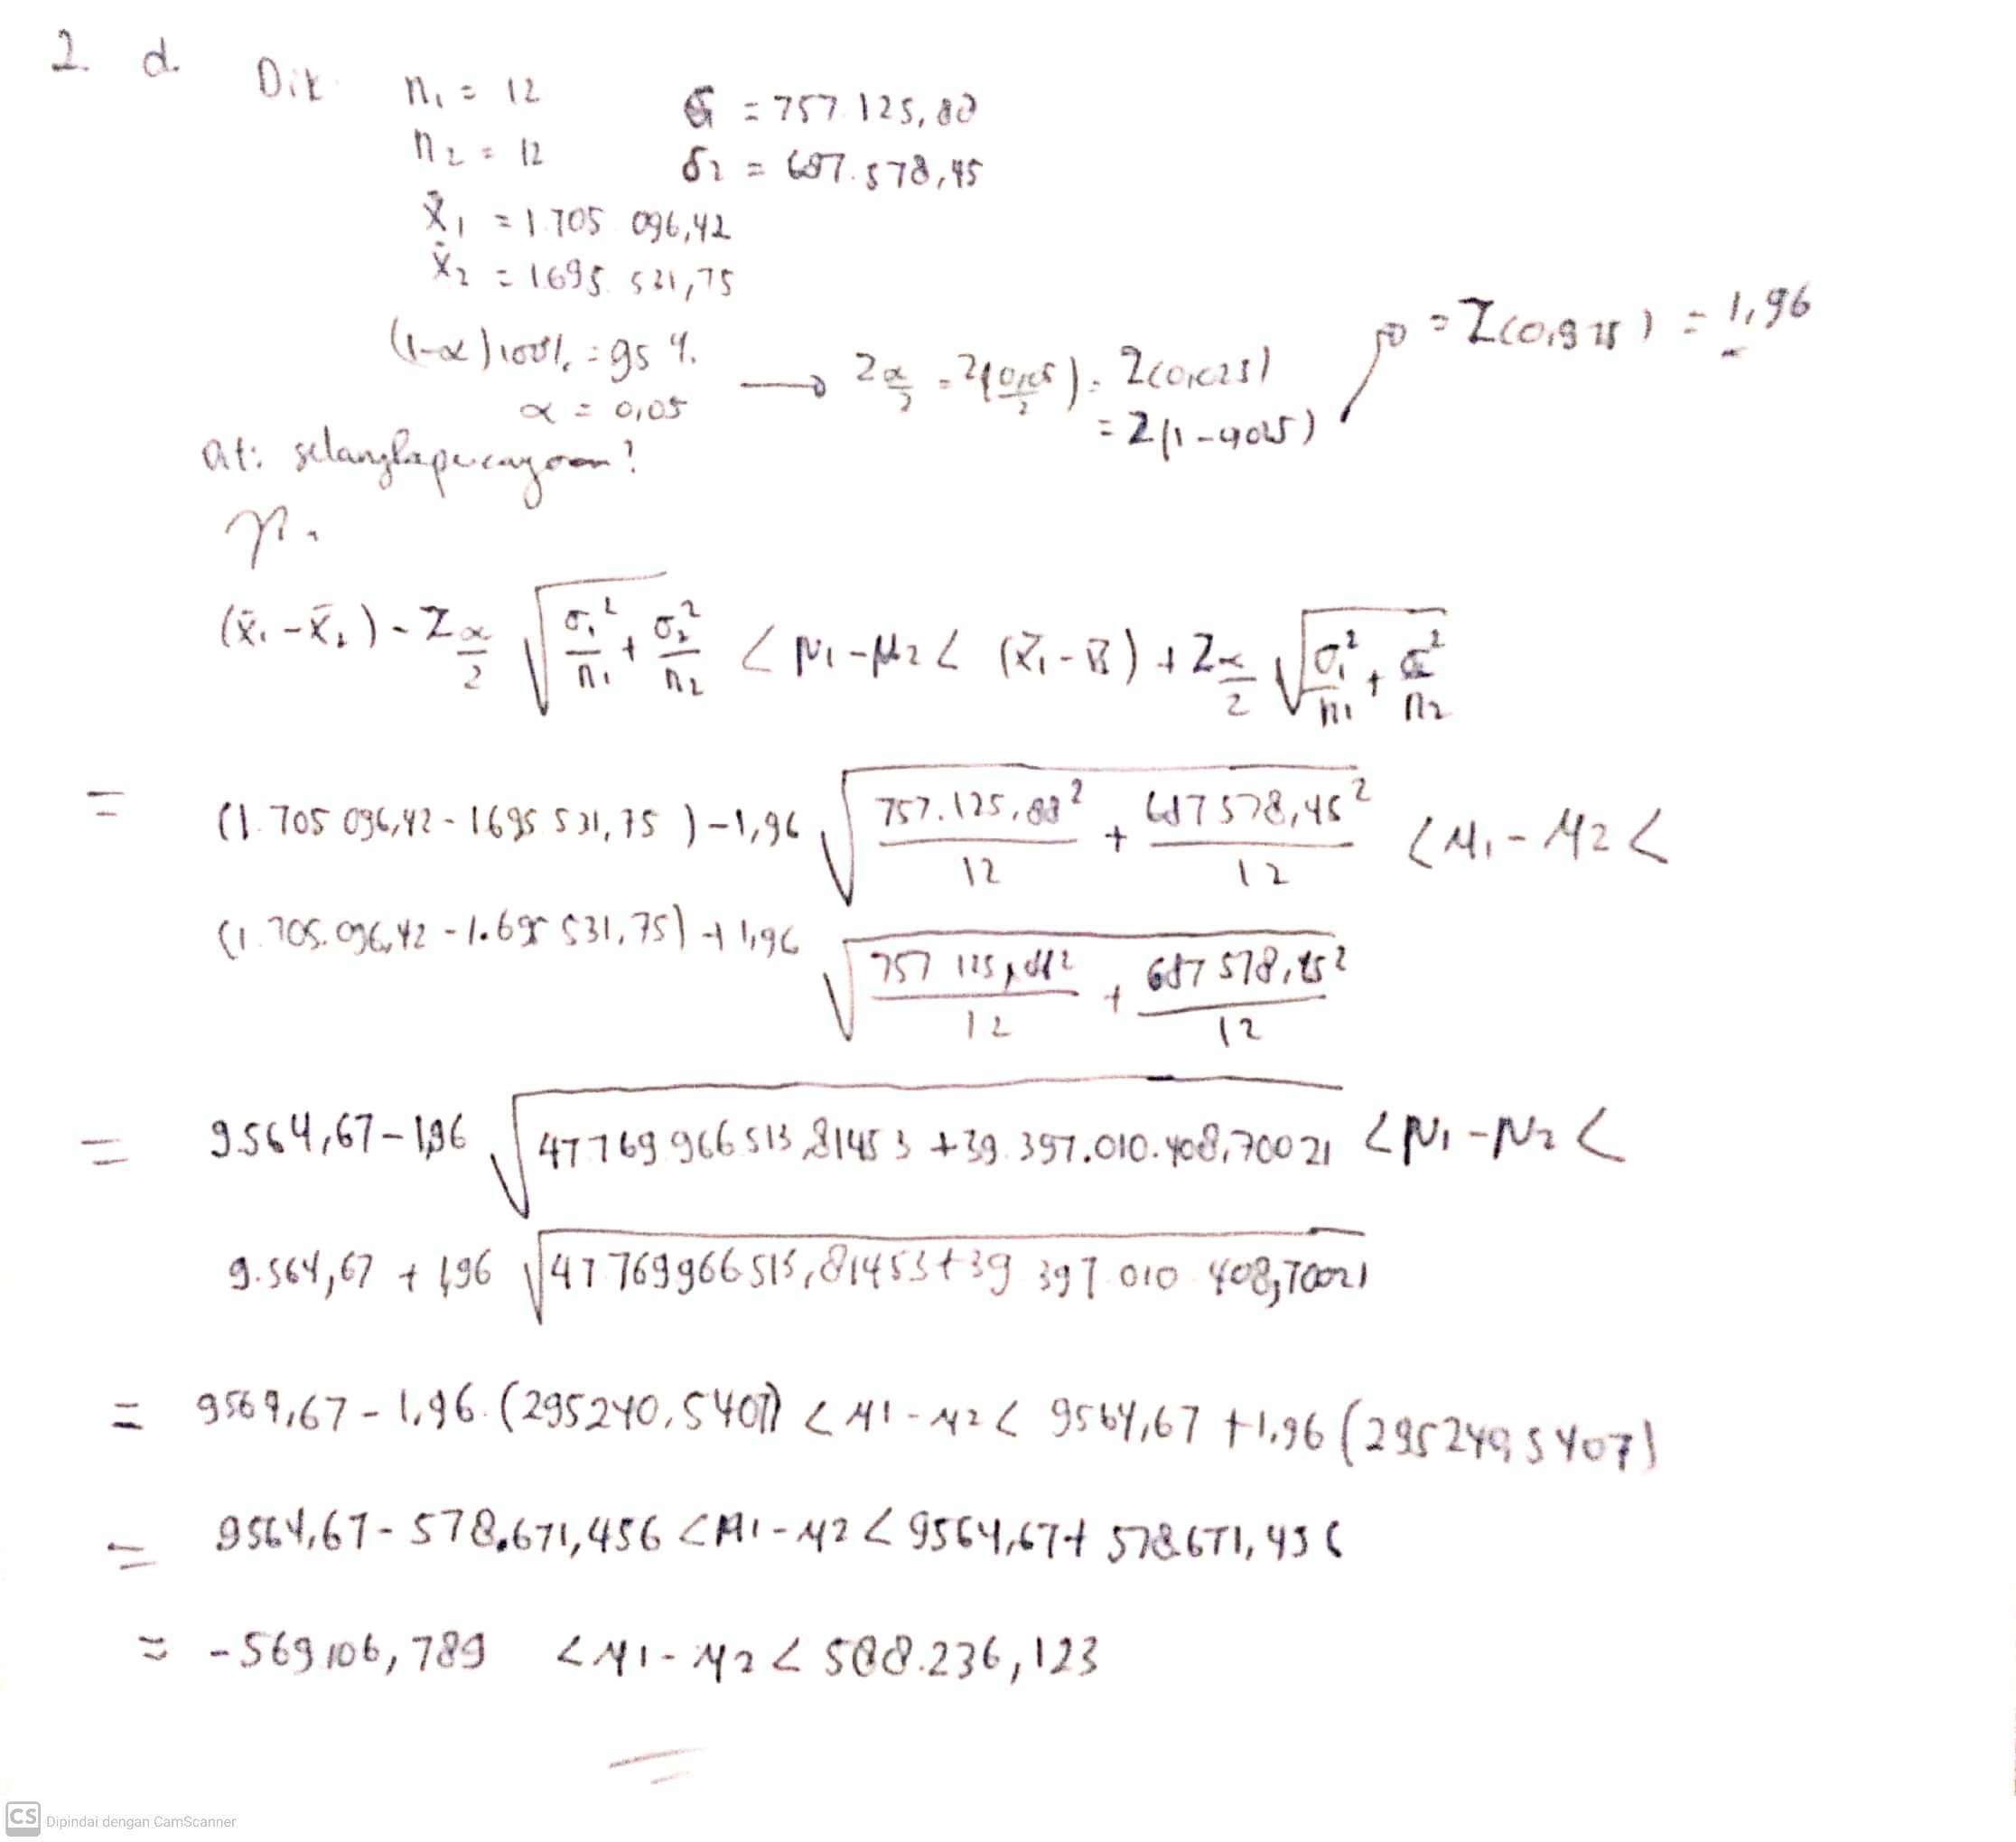 2. d. Dik
n₁ = 12 σ₁ = 757.125,88
n₂ = 12 σ₂ = 687.578,45
x̄₁ = 1.705 096,42
x̄₂ = 1.695.531,75
(1-α)100% = 95% → Zα/2 = Z(0,05/2) = Z(0,025) = Z(0,975) = 1,96
α = 0,05 = Z(1-0,025)
Dit: selang kepercayaan?
(x̄₁ - x̄₂) - Zα/2 √(σ₁²/n₁ + σ₂²/n₂) < μ₁ - μ₂ < (x̄₁ - x̄₂) + Zα/2 √(σ₁²/n₁ + σ₂²/n₂)
= (1.705 096,42 - 1695 531,75) - 1,96 √(757.125,88²/12 + 687578,45²/12) < μ₁ - μ₂ <
(1.705.096,42 - 1.695 531,75) + 1,96 √(757 125,88²/12 + 687 578,45²/12)
= 9.564,67 - 1,96 √(47.769 966 513,81453 + 39.397.010.408,70021) < μ₁ - μ₂ <
9.564,67 + 1,96 √(47 769966 513,81453 + 39 397 010 408,70021)
= 9569,67 - 1,96.(295240,5407) < μ1 - μ2 < 9564,67 + 1,96 (295240,5407)
= 9564,67 - 578.671,456 < μ1 - μ2 < 9564,67 + 578.671,456
= -569 106,789 < μ1 - μ2 < 588.236,123
CS Dipindai dengan CamScanner